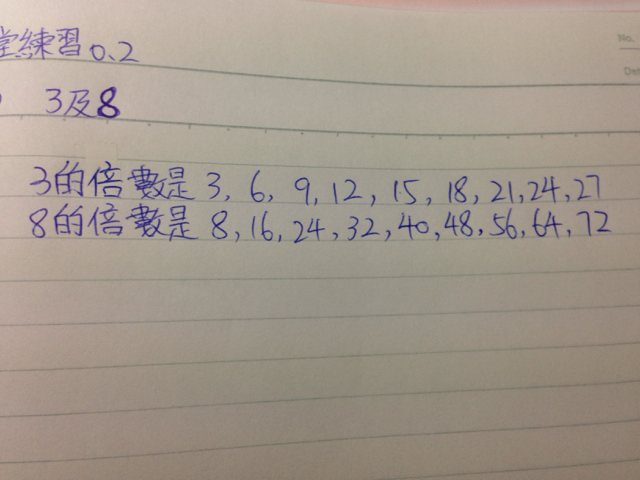 堂練習0.2
3及8
3的倍數是 3, 6, 9, 12, 15, 18, 21, 24, 27
8的倍數是 8, 16, 24, 32, 40, 48, 56, 64, 72
No.